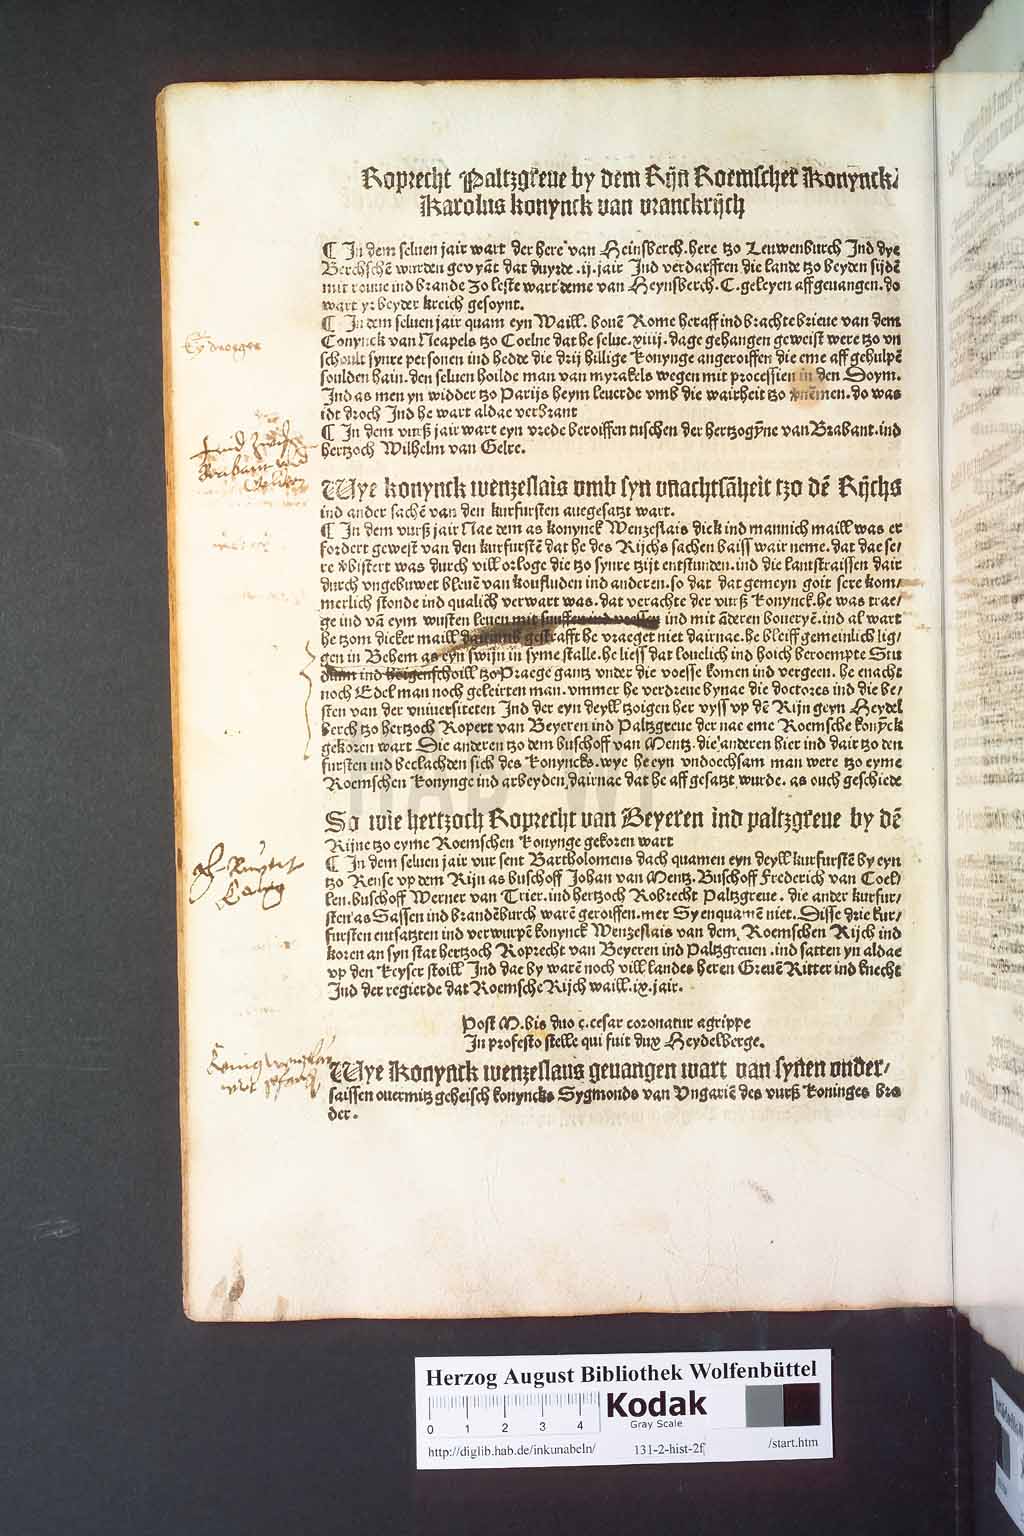 Roprecht Paltzgreue by dem Rijn Roemscher Konynck/
Karolus konynck van vranckrijch
¶ In dem seluen jair wart der here van Heinsberch. here tzo Leuwenburch Ind dye
Berchschē wurden gevyāt dat duyrde .ij. jair Ind verdarfften die lande tzo beyden sijdē
mit rouue ind brande Zo leste wart deme van Heynsberch. C. geleyen affgeuangen. do
wart yr beyder kreich gesoynt.
¶ In dem seluen jair quam eyn Waill. bouē Rome heraff ind brachte brieue van dem
Conynck van Neapels tzo Coelne dat he selue .xiiij. dage gehangen geweist were tzo vn
schoult synre personen ind hedde die drij hillige konynge angeroiffen die eme aff gehulpē
soulden hain. den seluen hoilde man van myrakels wegen mit processien in den Doym.
Ind as men yn widder tzo Parijs heym leuerde vmb die wairheit tzo do was
idt droch Ind he wart aldae verbrant
¶ In dem vurß jair wart eyn vrede beroiffen tuschen der hertzogȳne van Brabant. ind
hertzoch Wilhelm van Gelre.
Wye konynck wenzeslais vmb syn vnachtsāheit tzo dē Rijchs
ind ander sachē van den kurfursten auegesatzt wart.
¶ In dem vurß jair Nae dem as konynck Wenzeslais dick ind mannich maill was er
fordert gewest van den kurfurstē dat he des Rijchs sachen baiss wair neme. dat dae se/
re v̄bistert was durch vill orloge die tzo synre tzijt entstunden. ind die lantstraissen dair
durch vngebuwet bleuē van koufluden ind anderen. so dat dat gemeyn goit sere kom/
merlich stonde ind qualich verwart was. dat verachte der vurß konynck. he was trae/
ge ind vā eym wusten leuen mit suuffen ind vressen ind mit āderen boueryē. ind al wart
he tzom dicker maill dairumb gestrafft he vraeget niet dairnae. he bleiff gemeinlich lig/
gen in Behem as eyn swijn in syme stalle. he liess dat louelich ind hoich beroempte Stu
dium ind schoill tzo Praege gantz vnder die voesse komen ind vergeen. he enacht
noch Edel man noch geleirten man. vmmer he verdreue bynae die doctores ind die be/
sten van der vniuersiteten Ind der eyn deyll tzoigen her vyss vp dē Rijn geyn Heydel
berch tzo hertzoch Ropert van Beyeren ind Paltzgreue der nae eme Roemsche konȳck
gekoren wart Die anderen tzo dem buschoff van Mentz. die anderen hier ind dair tzo den
fursten ind beclachden sich des konyncks. wye he eyn vndoechsam man were tzo eyme
Roemschen konynge ind arbeyden dairnae dat he aff gesatzt wurde. as ouch geschiede
So wie hertzoch Roprecht van Beyeren ind paltzgreue by dē
Rijne tzo eyme Roemschen konynge gekoren wart
¶ In dem seluen jair vur sent Bartholomeus dach quamen eyn deyll kurfurstē by eyn
tzo Rense vp dem Rijn as buschoff Johan van Mentz. Buschoff Frederich van Coel/
len. buschoff Werner van Trier. ind hertzoch Robrecht Paltzgreue. die ander kurfur/
sten as Sassen ind brandēburch warē geroiffen. mer Sy enquamē niet. Disse drie kur/
fursten entsatzten ind verwurpē konynck Wenzeslais van dem Roemschen Rijch ind
koren an syn stat hertzoch Roprecht van Beyeren ind Paltzgreuen. ind satten yn aldae
vp den keyser stoill Ind dae by warē noch vill landes heren Greuē Ritter ind knecht
Ind der regierde dat Roemsche Rijch waill .ix. jair.
Post M. bis duo c. cesar coronatur agrippe
In profesto stelle qui fuit dux Heydelberge.
Wye Konynck wenzeslaus geuangen wart van synen vnder/
saissen ouermitz geheisch konyncks Sygmonds van Vngariē des vurß koninges bro
der.
Herzog August Bibliothek Wolfenbüttel
0 1 2 3 4
Kodak
Gray Scale
http://diglib.hab.de/inkunabeln/ 131-2-hist-2f /start.htm